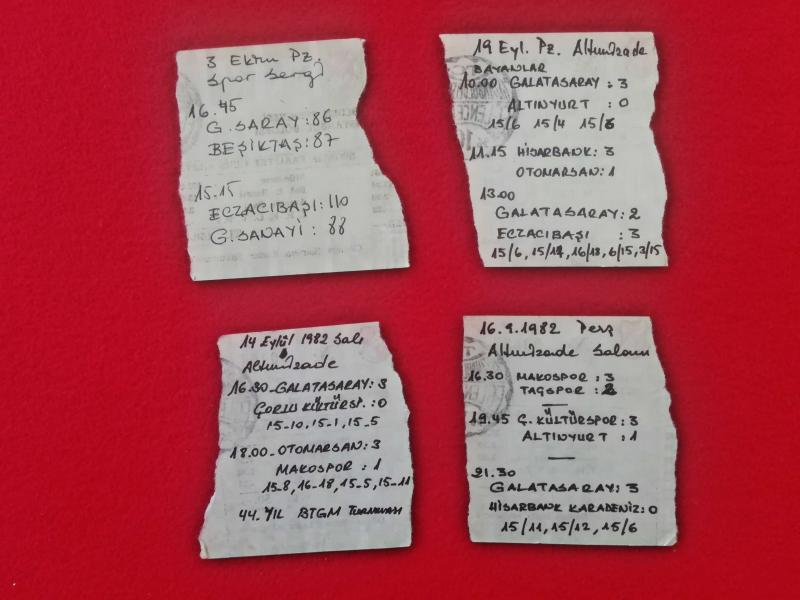 3 Ekim Pz.
Spor Sergi
16.45
G. SARAY : 86
BEŞİKTAŞ : 87
15.15
ECZACIBAŞI : 110
G. SANAYİ : 88
19 Eyl. Pz. Altunizade
BAYANLAR
10.00 GALATASARAY : 3
ALTINYURT : 0
15/6 15/4 15/6
11.15 HİSARBANK : 3
OTOMARSAN : 1
13.00
GALATASARAY : 2
ECZACIBAŞI : 3
15/6, 15/17, 16/18, 6/15, 3/15
14 Eylül 1982 Salı
Altunizade
16.30 - GALATASARAY : 3
ÇORLU KÜLTÜRSP. : 0
15-10, 15-1, 15-5
18.00 - OTOMARSAN : 3
MAKOSPOR : 1
15-8, 16-18, 15-5, 15-11
44. YIL BTGM TURNUVASI
16.9.1982 Perş
Altunizade Salonu
16.30 MAKOSPOR : 3
TAÇSPOR : 2
19.45 Ç. KÜLTÜRSPOR : 3
ALTINYURT : 1
21.30
GALATASARAY : 3
HİSARBANK KARADENİZ : 0
15/11, 15/12, 15/6